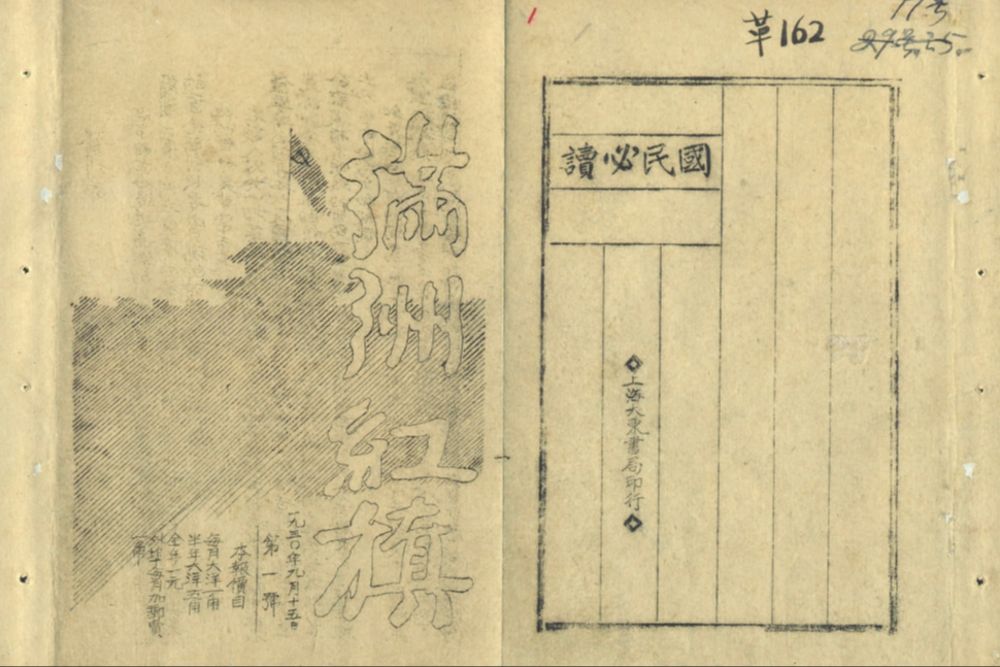 革162
國民必讀
上海大東書局印行
滿洲紅旗
一九三〇年九月十五日
第一號
本報價目
每月大洋一角
半年大洋五角
全年一元